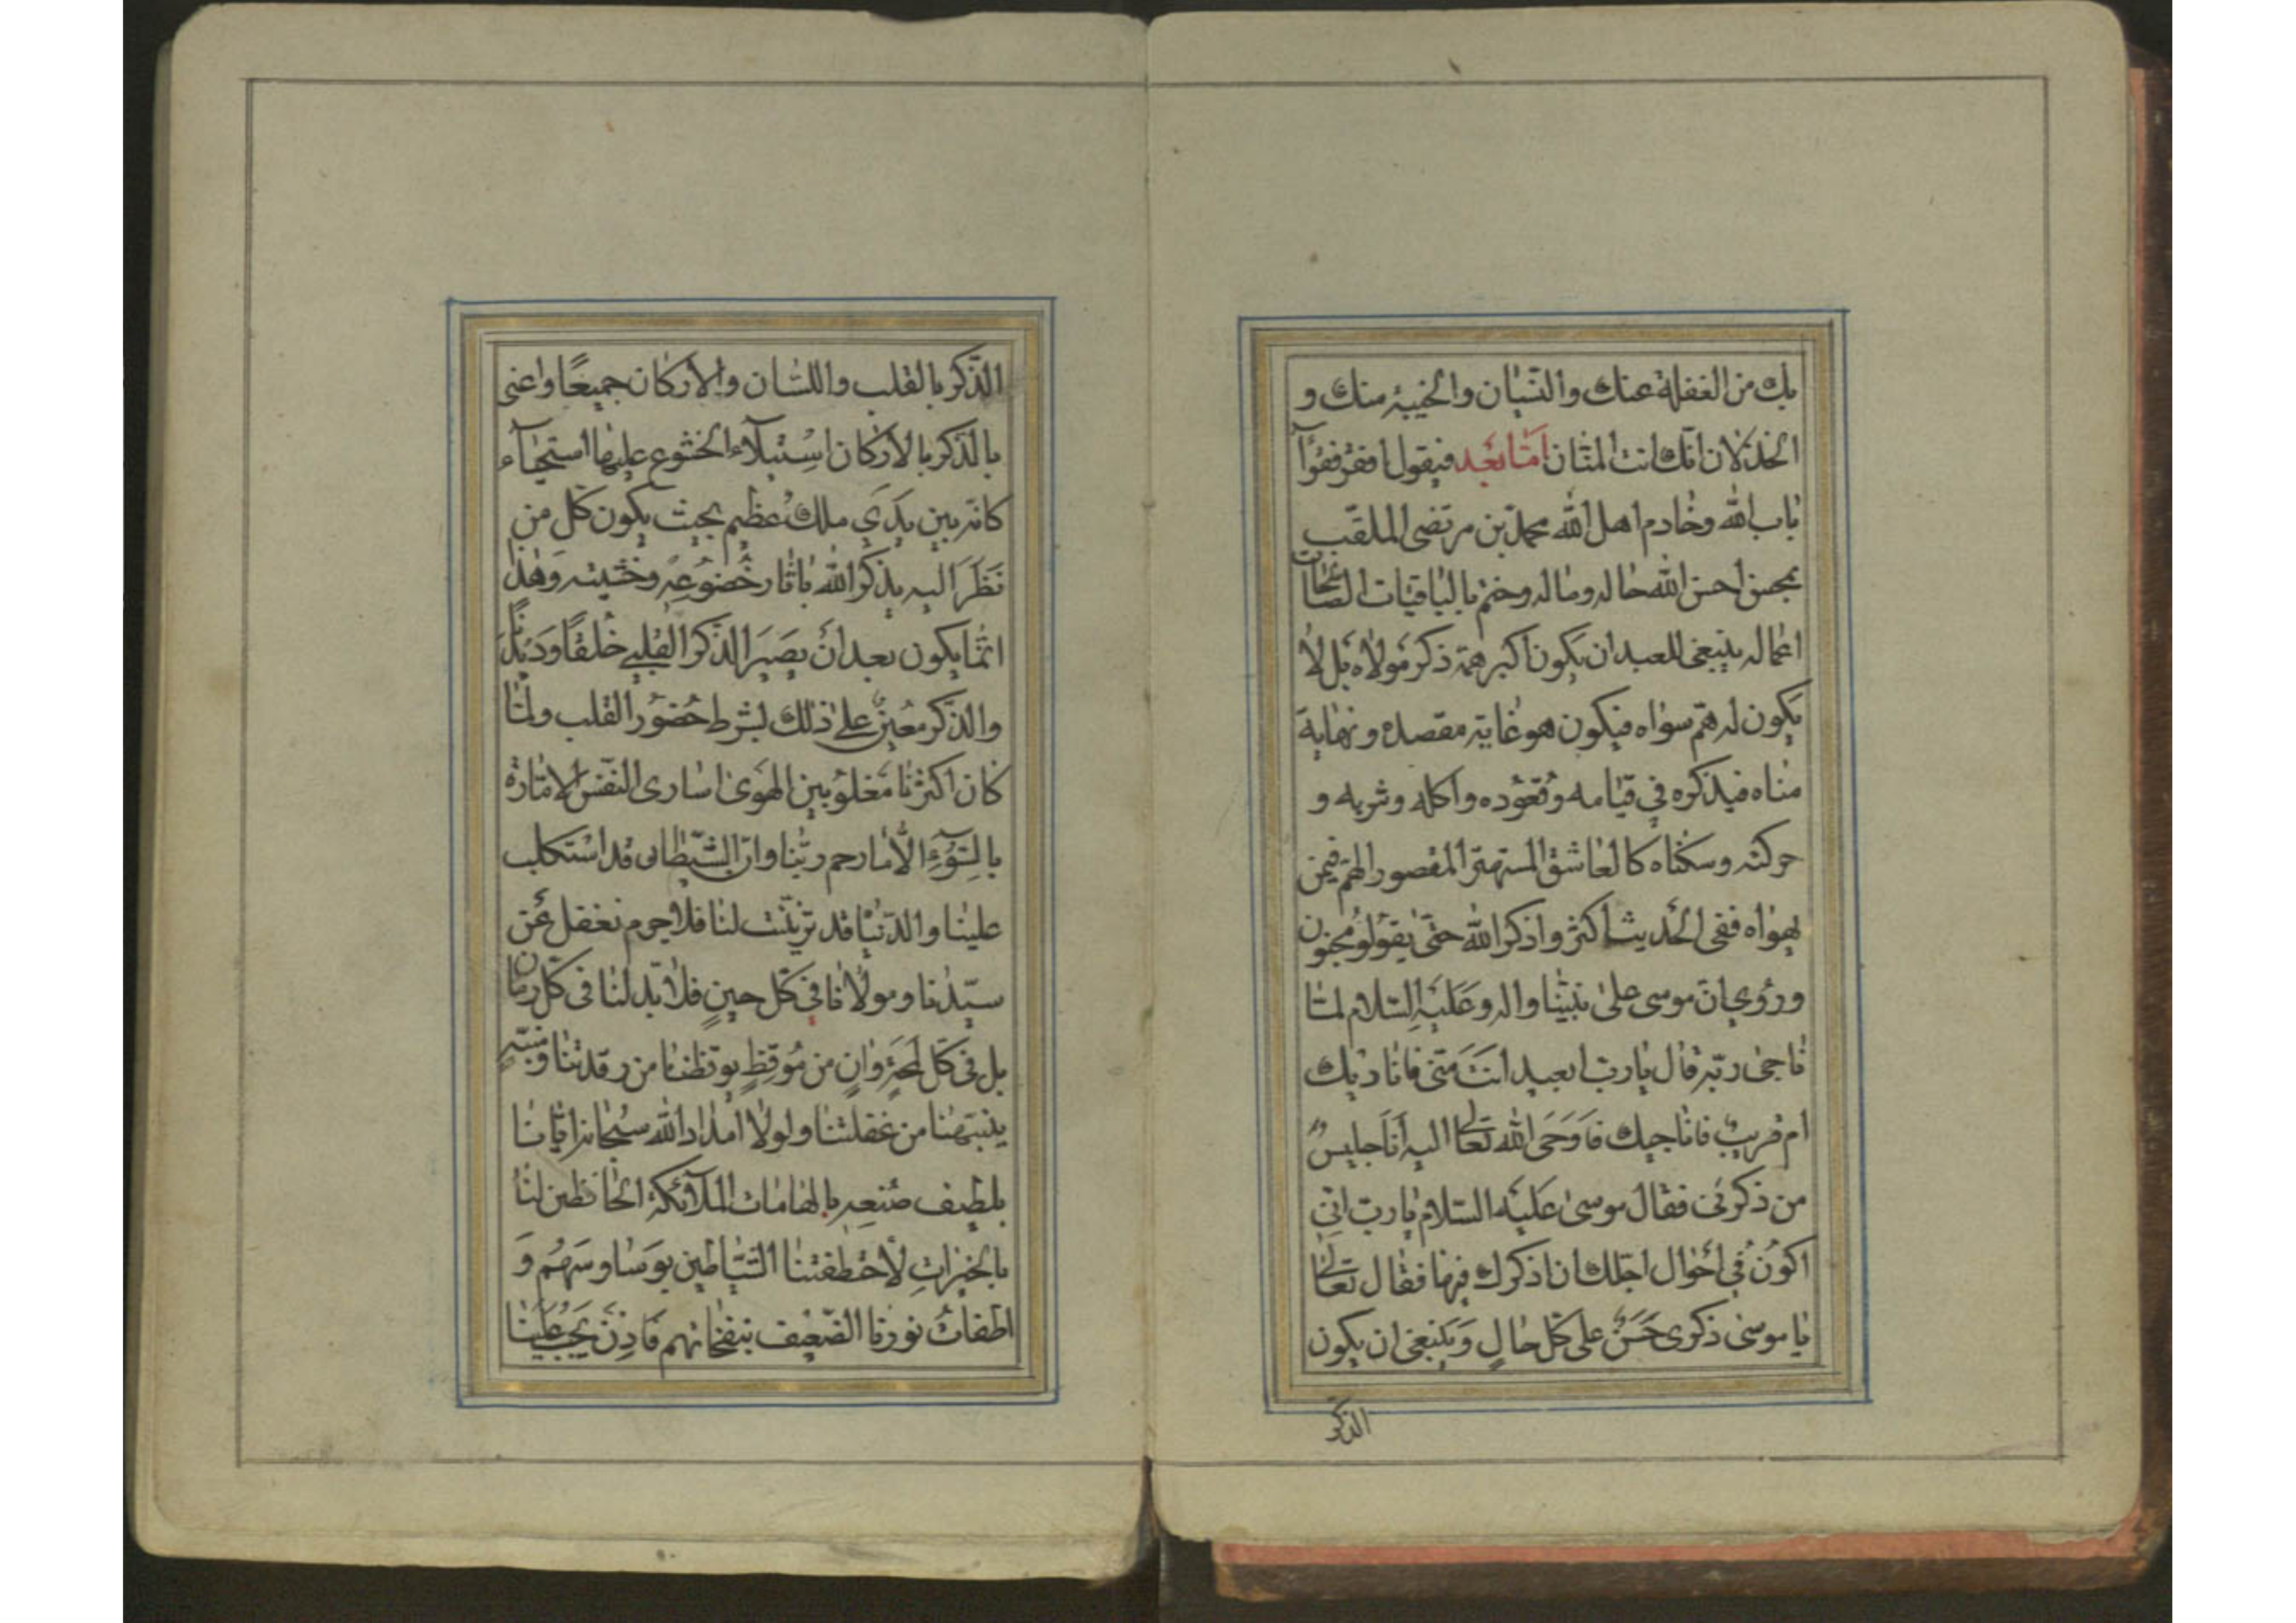 بك من الغفلة عنك والنسيان والخيبة منك و
الخذلان انك انت المنان امّا بعد فيقول افقر فقرآء
باب الله وخادم اهل الله محمد بن مرتضى الملقب
بمحسن احسن الله حاله وماله وختم بالباقيات الصالحات
اعماله ينبغي للعبد ان يكون اكبر همه ذكر مولاه بل لا
يكون له همّ سواه فيكون هو غاية مقصده ونهاية
مناه فيذكره في قيامه وقعوده واكله وشربه و
حركته وسكناه كالعاشق المستهتر المقصور الهم فيمن
يهواه ففى الحديث اكثروا ذكر الله حتى يقولو مجنون
وروي انّ موسى على نبينا واله وعليه السلام لمّا
ناجى ربّه قال يا ربّ ابعيد انت منّى فاناديك
ام قريب فاناجيك فاوحى الله تعالى اليه انا جليس
من ذكرنى فقال موسى عليه السلام يا ربّ انّي
اكون في احوال اجلك ان اذكرك فيها فقال تعالى
يا موسى ذكرى حسن على كل حال وينبغى ان يكون
الذكر
الذّكر بالقلب واللسان والاركان جميعًا واعنى
بالذكر بالاركان استيلاء الخشوع عليها استحيآء
كانه بين يدي ملك عظيم بحيث يكون كل من
نظر اليه يذكر الله باثار خضوعه وخشيته وهذا
انّما يكون بعد ان يصير الذكر القلبي خلقًا وديدنًا
والذكر معين على ذلك بشرط حضور القلب ولمّا
كان اكثرنا مغلوبين الهوى اسارى النفس الامّارة
بالسّوء الّا ما رحم ربّنا وانّ الشيطان قد استكلب
علينا والدّنيا قد تزيّنت لنا فلا جرم نغفل عن
سيّدنا ومولانا في كلّ حينٍ فلا بدّ لنا فى كل زمان
بل فى كلّ لمحةٍ وانٍ من موقظٍ يوقظنا من رقدتنا ومنبّهٍ
ينبّهنا من غفلتنا ولولا امداد الله سبحانه ايّانا
بلطيف صنعه بالهامات الملآئكة الحافظين لنا
بالخيرات لاختطفتنا الشياطين بوساوسهم و
اطفات نورنا الضعيف بنفخاتهم فاذن يجب علينا